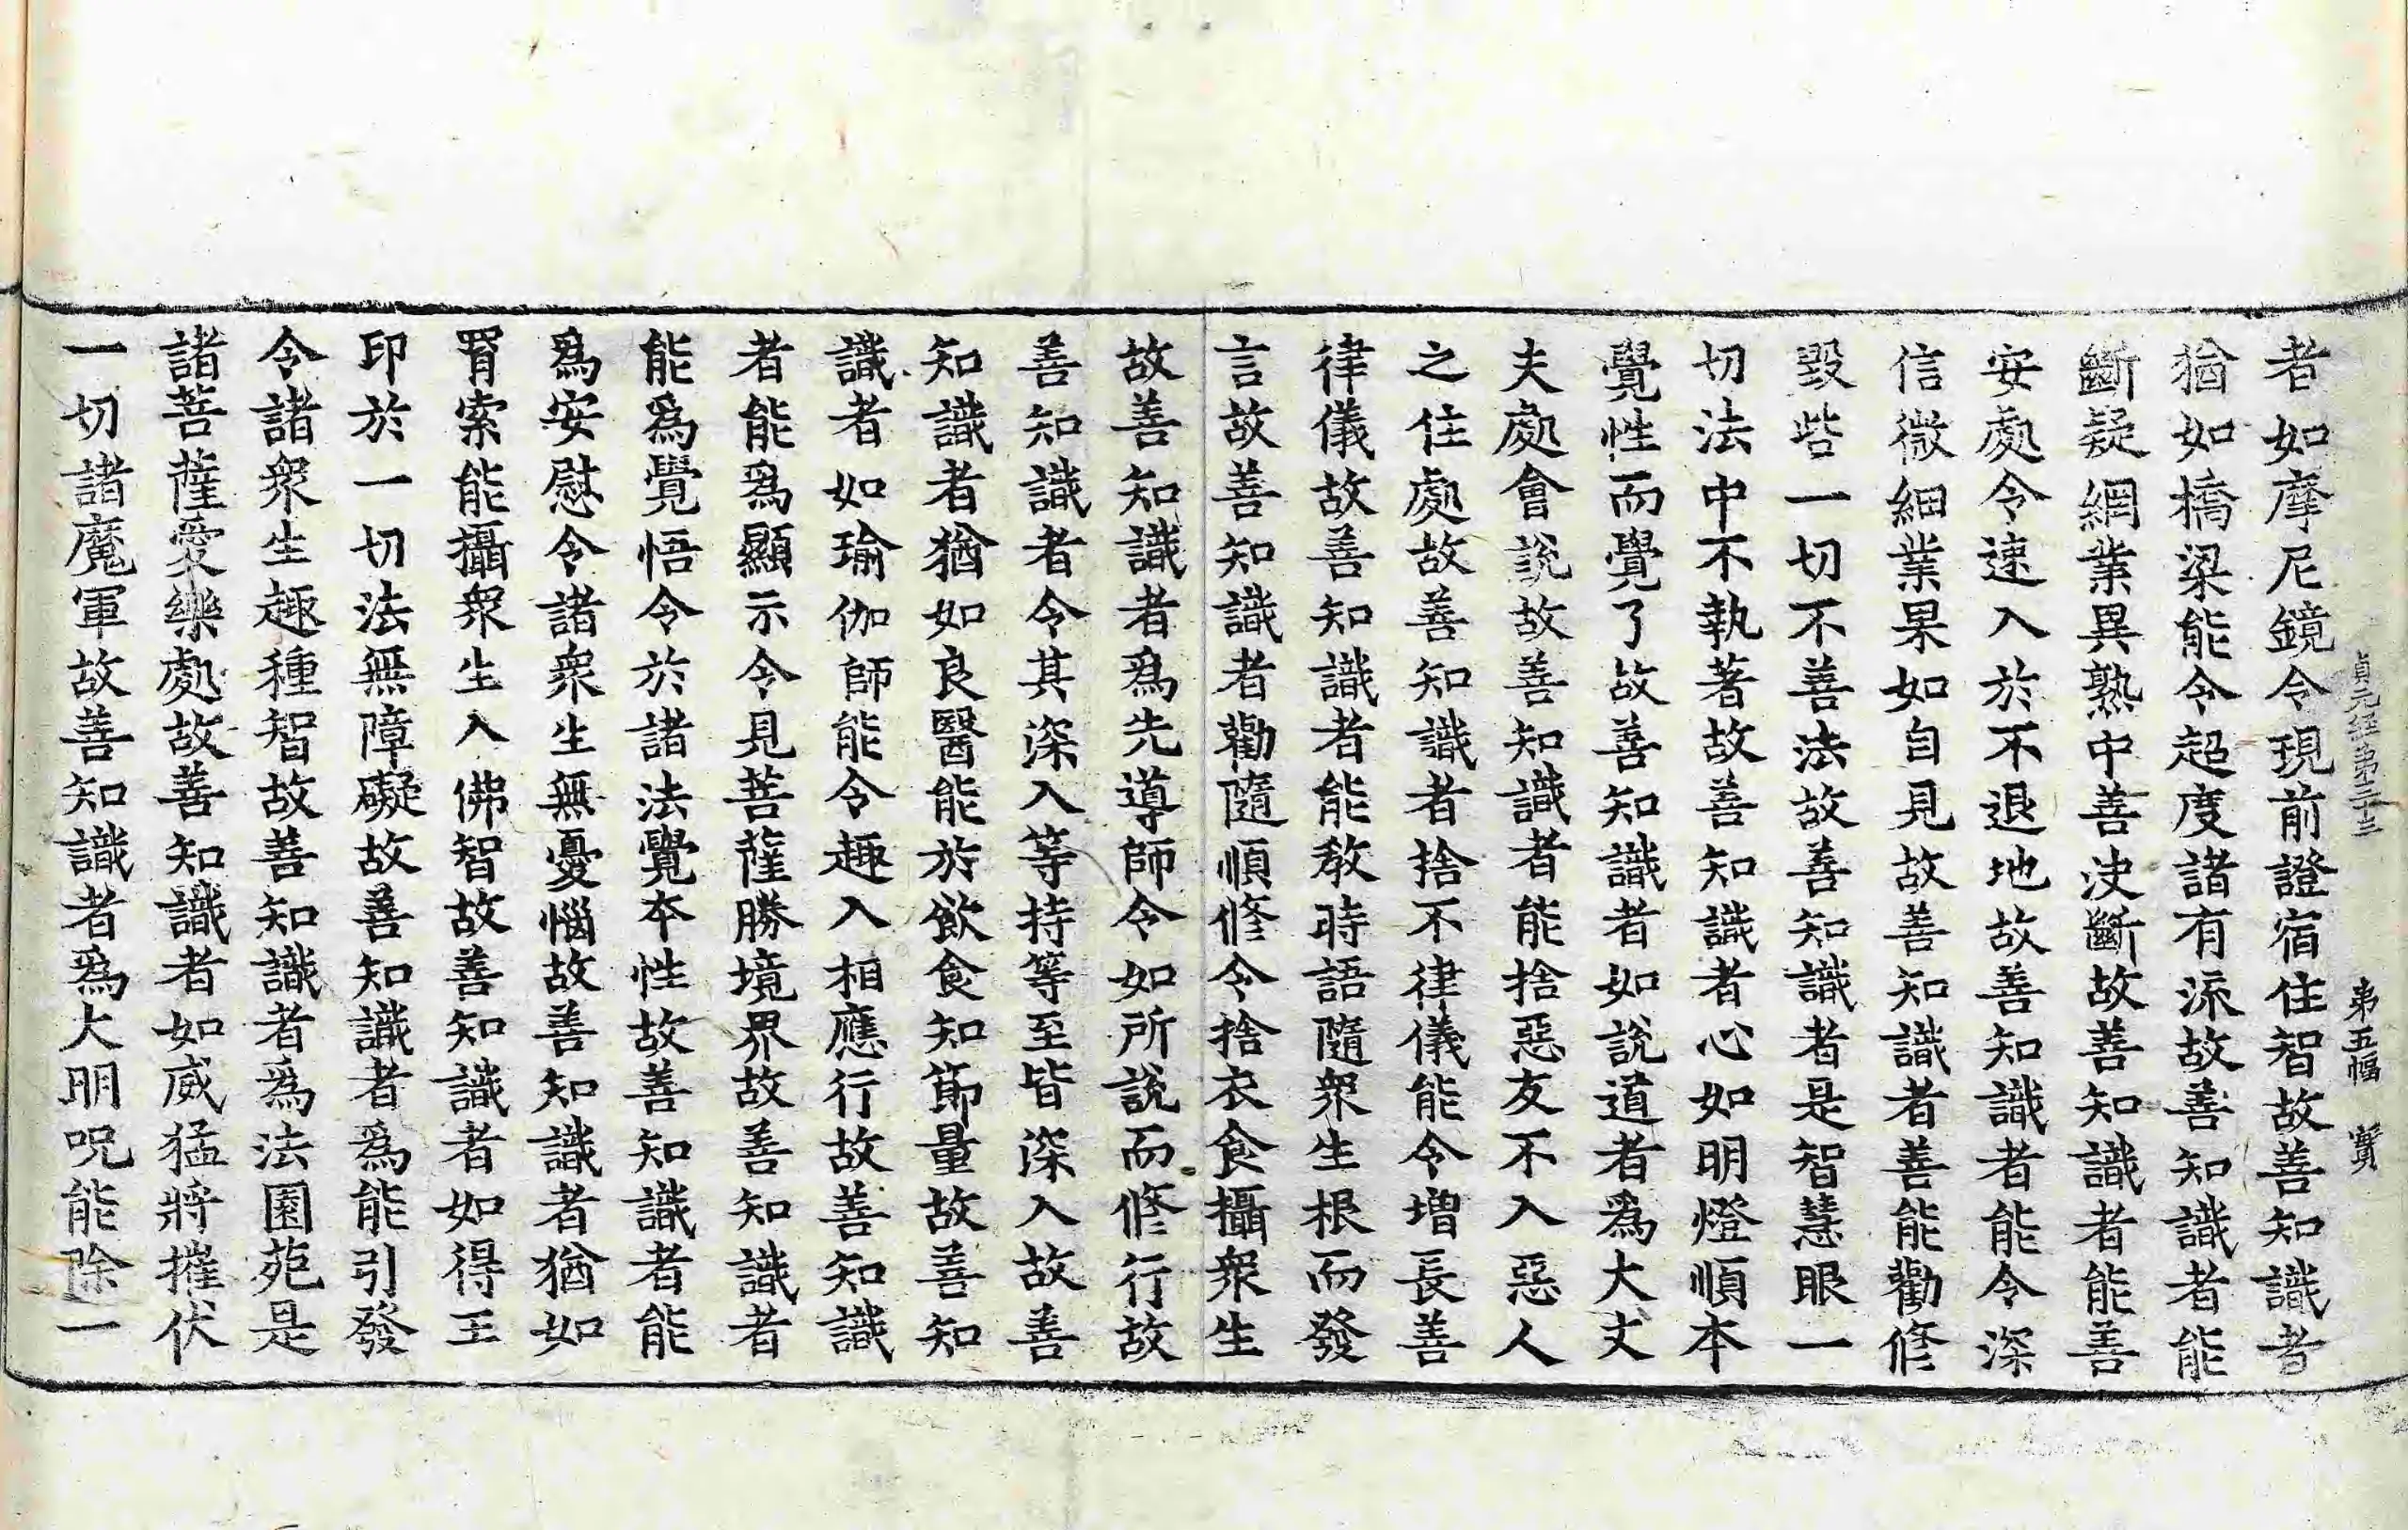 貞元經第三十三 第五幅 實
者如摩尼鏡令現前證宿住智故善知識者
猶如橋梁能令超度諸有流故善知識者能
斷疑網業異熟中善決斷故善知識者能善
安處令速入於不退地故善知識者能令深
信微細業果如自見故善知識者善能勸修
毀呰一切不善法故善知識者是智慧眼一
切法中不執著故善知識者心如明燈順本
覺性而覺了故善知識者如說道者爲大丈
夫處會說故善知識者能捨惡友不入惡人
之住處故善知識者捨不律儀能令增長善
律儀故善知識者能教時語隨衆生根而發
言故善知識者勸隨順修令捨衣食攝衆生
故善知識者爲先導師令如所說而修行故
善知識者令其深入等持等至皆深入故善
知識者猶如良醫能於飲食知節量故善知
識者如瑜伽師能令趣入相應行故善知識
者能爲顯示令見菩薩勝境界故善知識者
能爲覺悟令於諸法覺本性故善知識者能
爲安慰令諸衆生無憂惱故善知識者猶如
罥索能攝衆生入佛智故善知識者如得王
印於一切法無障礙故善知識者爲能引發
令諸衆生趣種智故善知識者爲法園苑是
諸菩薩愛樂處故善知識者如威猛將摧伏
一切諸魔軍故善知識者爲大明呪能除一